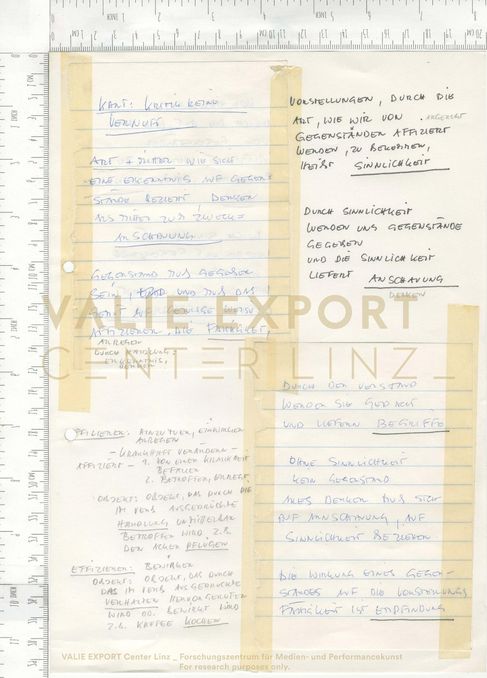 KANT: KRITIK REINE
VERNUFT
ART + MITTEL WIE SICH
EINE ERKENNTNIS AUF GEGEN-
STÄNDE BEZIEHT, DENKEN
ALS MITTEL ZUM ZWECK =
ANSCHAUUNG
GEGENSTAND MUSS GEGEBEN
SEIN, UND MUSS DAS
AUF GEWISSE WEISE
AFFIZIEREN, DIE FÄHIGKEIT,
ANREGEN
ERKENNTNIS,
DENKEN
VORSTELLUNGEN, DURCH DIE
ART, WIE WIR VON ANGEREGT
GEGENSTÄNDEN AFFIZIERT
WERDEN, ZU BEKOMMEN,
HEIßT SINNLICHKEIT
DURCH SINNLICHKEIT
WERDEN UNS GEGENSTÄNDE
GEGEBEN
UND DIE SINNLICHKEIT
LIEFERT ANSCHAUUNG
DENKEN
VALIE EXPORT
CENTER LINZ_
DURCH DEN VERSTAND
WERDEN SIE GEDACHT
UND LIEFERN BEGRIFFE
OHNE SINNLICHKEIT
KEIN GEGENSTAND
ALLES DENKEN MUS SICH
AUF ANSCHAUUNG, AUF
SINNLICHKEIT BEZIEHEN
DIE WIRKUNG EINES GEGEN-
STANDES AUF DIE VORSTELLUNGS
FÄHIGKEIT IST EMPFINDUNG
AFFIZIEREN: HINZUTUEN, EINWIRKEN
ANREGEN
- KRANKHAFT VERÄNDERN -
AFFIZIERT - 1. VON EINER KRANKHEIT
BEFALLEN
2. BETROFFEN, ERREGT
OBJEKT: OBJEKT, DAS DURCH DIE
IM VERB AUSGEDRÜCKTE
HANDLUNG UNMITTELBAR
BETROFFEN WIRD Z.B.
DEN ACKER PFLÜGEN
EFFIZIEREN: BEWIRKEN
OBJEKT: OBJEKT, DAS DURCH
DAS IM VERB AUSGEDRÜCKTE
VERHALTEN HERVORGERUFEN
WIRD OD. BEWIRKT WIRD
Z.B. KAFFEE KOCHEN
VALIE EXPORT Center Linz _ Forschungszentrum für Medien- und Performancekunst
For research purposes only.